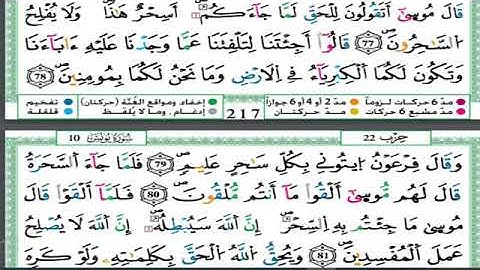 قَالَ مُوسَىٰ أَتَقُولُونَ لِلْحَقِّ لَمَّا جَآءَكُمْ أَسِحْرٌ هَٰذَا وَلَا يُفْلِحُ
السَّٰحِرُونَ 77 قَالُوا أَجِئْتَنَا لِتَلْفِتَنَا عَمَّا وَجَدْنَا عَلَيْهِ ءَابَآءَنَا
وَتَكُونَ لَكُمَا الْكِبْرِيَآءُ فِى الْأَرْضِ وَمَا نَحْنُ لَكُمَا بِمُومِنِينَ 78
مدّ 6 حركات لزوماً مدّ 2 أو 4 أو 6 جوازاً إخفاء، ومواقع الغُنَّة (حركتان) تفخيم
مدّ مشبع 6 حركات مدّ حركتان 217 إدغام، وما لا يُلفَظ قلقلة
حِزْب 22 سُورَةُ يُونُسَ 10
وَقَالَ فِرْعَوْنُ ايتُونِى بِكُلِّ سَٰحِرٍ عَلِيمٍ 79 فَلَمَّا جَآءَ السَّحَرَةُ
قَالَ لَهُم مُّوسَىٰ أَلْقُوا مَآ أَنتُم مُّلْقُونَ 80 فَلَمَّآ أَلْقَوْا قَالَ
مُوسَىٰ مَا جِئْتُم بِهِ السِّحْرُ إِنَّ اللَّهَ سَيُبْطِلُهُ إِنَّ اللَّهَ لَا يُصْلِحُ
عَمَلَ الْمُفْسِدِينَ 81 وَيُحِقُّ اللَّهُ الْحَقَّ بِكَلِمَٰتِهِ وَلَوْ كَرِهَ